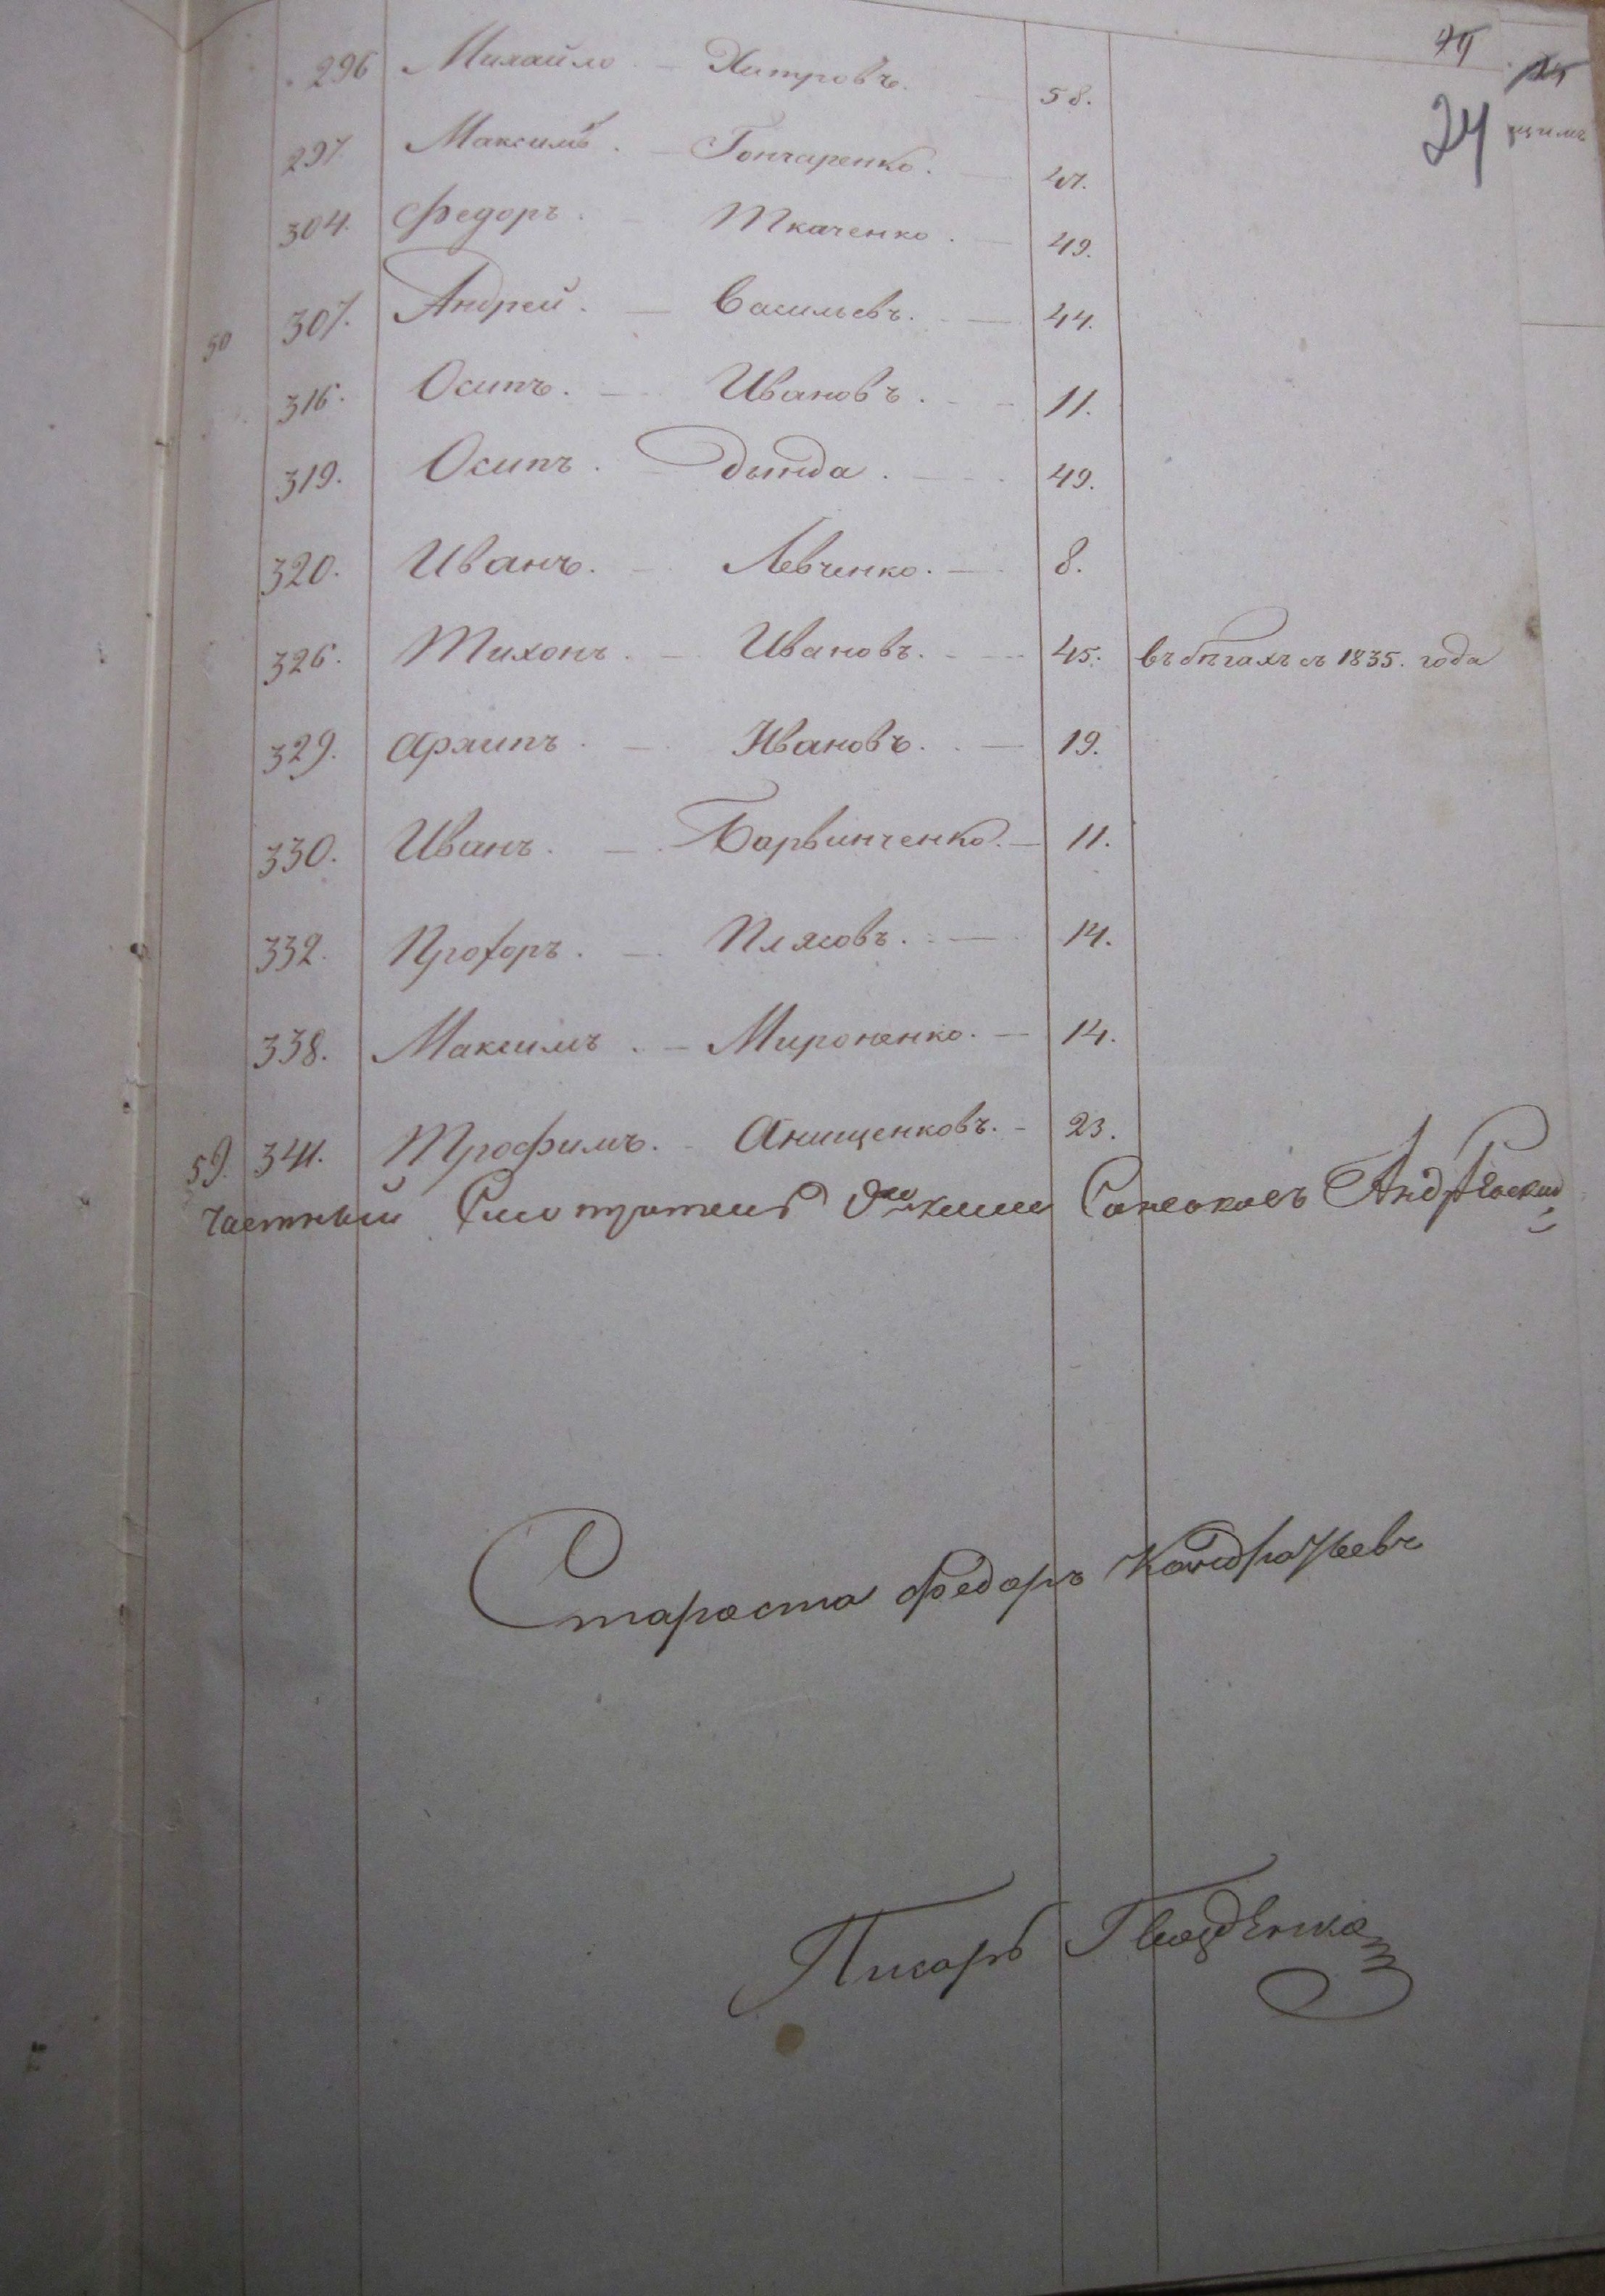 24
296 Михайло. — Хитровъ. — 58.
297. Максимъ. — Гончаренко. — 47.
304. Федоръ. — Ткаченко. — 49.
50 307. Андрей. — Васильевъ. — 44.
316. Осипъ. — Ивановъ. — 11.
319. Осипъ. — Дында. — 49.
320. Иванъ. — Левченко. — 8.
326. Тихонъ. — Ивановъ. — 45. въ бѣгахъ съ 1835. года
329. Архипъ. — Ивановъ. — 19.
330. Иванъ. — Барвинченко. — 11.
332. Прохоръ. — Плясовъ. — 14.
338. Максимъ. — Мироненко. — 14.
59. 341. Трофимъ. — Анищенковъ. — 23.
Частный Смотритель
Староста Федоръ Кондратьевъ
Писарь